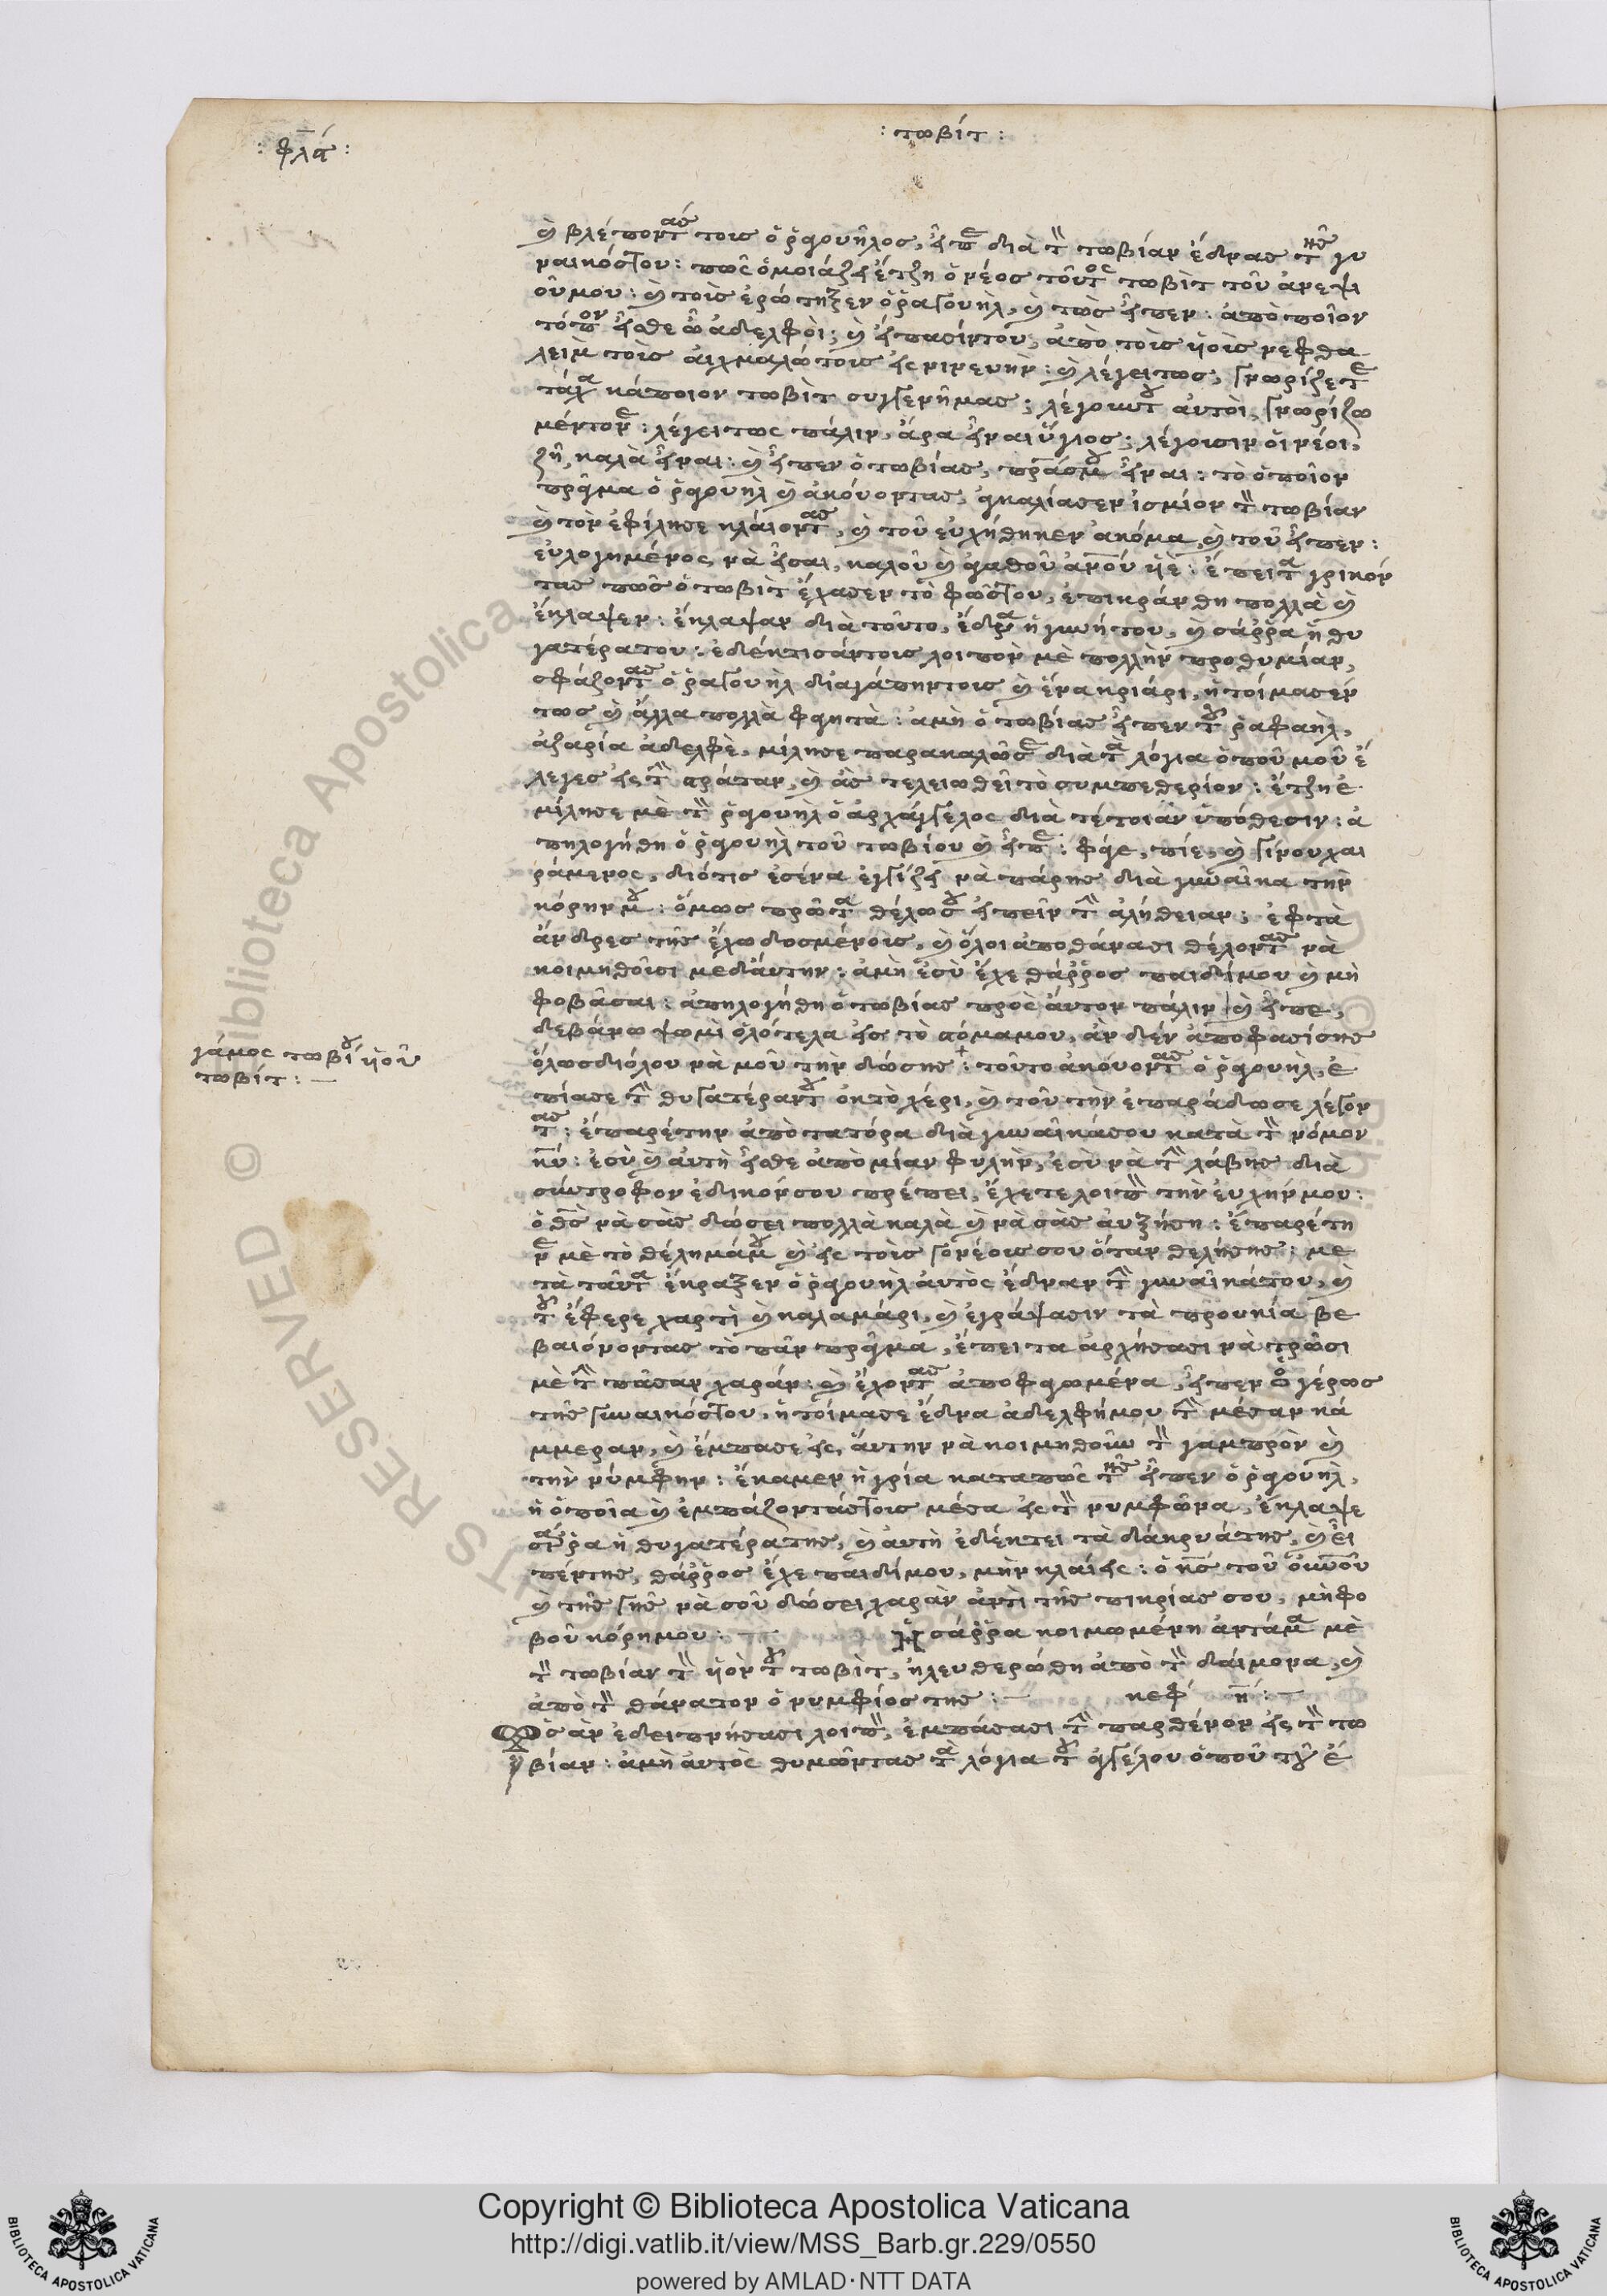 : τωβίτ :
: φλα :
καὶ βλέποντάς τους ὁ ῥαγουῆλος, εἶπε διὰ τὸν τωβίαν ἔδνας τῆς γυ
ναικός του: πῶς ὁμοιάζει ἔτζη ὁ νέος τοῦτος τωβὶτ τοῦ ἀνεψι
οῦ μου: καὶ τοὶς ἐρώτηξεν ὁ ῥαγουὴλ, καὶ τὼς εἶπεν: ἀπὸ ποῖον
τόπον εἶσθε ὦ ἀδελφοὶ; καὶ εἴπασίντου, ἀπὸ τοὶς υἱοὶς νεφθα
λεὶμ τοὶς αἰχμαλώτοις εἰς νινευὴν: καὶ λέγει τως, γνωρίζετε
τάχα κάποιον τωβὶτ συγγενῆ μας; λέγουν του αὐτοὶ, γνωρίζω
μέντονε: λέγει τως πάλιν, ἆρα εἶναι ὕγιος; λέγουσιν οἱ νέοι,
ζῆ, καλὰ εἶναι: καὶ εἶπεν ὁ τωβίας, πατέρας μου εἶναι: τὸ ὁποῖον
πρᾶγμα ὁ ῥαγουὴλ καὶ ἀκούοντας, ἀγκαλίασεν ἰσμίον τὸν τωβίαν
καὶ τὸν ἐφίλησε κλαίοντας, καὶ τοῦ εὐχήθηκεν ἀκόμα, καὶ τοῦ εἶπεν:
εὐλογημένος νὰ εἶσαι, καλοῦ καὶ ἀγαθοῦ ἀνθρώπου υἱέ: ἔπειτα γρικόν
τας πῶς ὁ τωβὶτ ἔχασεν τὸ φῶς του, ἐπικράνθη πολλὰ καὶ
ἔκλαψεν: ἔκλαψαν διὰ τοῦτο, ἔδνα ἡ γυνή του, καὶ σάῤῥα ἡ θυ
γατέρα του: ἐδέκτισάντοις λοιπὸν μὲ πολλὴν προθυμίαν,
σφάζοντας ὁ ῥαγουὴλ δι' ἀγάπηντοις καὶ ἕνα κριάρι, ἡτοίμασέν
τως καὶ ἄλλα πολλὰ φαγητὰ: ἀμὴ ὁ τωβίας εἶπεν τοῦ ῥαφαὴλ,
ἀζαρία ἀδελφὲ, μίλησε παρακαλῶ σε διὰ τὰ λόγια ὁποῦ μοῦ ἔ
λεγες εἰς τὴν στράταν, καὶ ἂς τελειωθεῖ τὸ συμπεθερίον: ἔτζη ἐ
μίλησε μὲ τὸν ῥαγουὴλ ὁ ἀρχάγγελος διὰ τέτοιαν ὑπόθεσιν: ἀ
πηλογήθη ὁ ῥαγουὴλ τοῦ τωβίου καὶ εἶπε: φάγε, πίε, καὶ γίνου χαι
ράμενος, διότις ἐσένα ἐγγίζει νὰ πάρης διὰ γυναῖκα τὴν
κόρην μου: ὅμως πρῶτα θέλω σου εἰπεῖν τὴν ἀλήθειαν; ἑφτὰ
ἄνδρες τῆς ἔχω δοσμένοις, καὶ ὅλοι ἀποθάνασι θέλοντας νὰ
κοιμηθοῦσι μεδαύτην: ἀμὴ ἐσὺ ἔχε θάῤῥος παιδίμου καὶ μὴ
φοβᾶσαι: ἀπηλογήθη ὁ τωβίας πρὸς αὐτὸν πάλιν καὶ εἶπε,
δεβάνω ψωμὶ ὁλότελα εἰς τὸ στόμαμου, ἂν δὲν ἀποφασίσης
ὅλως διόλου νὰ μοῦ τὴν δώσης: τοῦτο ἀκούοντας ὁ ῥαγουὴλ, ἐ
πίασε τὴν θυγατέραν του ἐκ τὸ χέρι, καὶ τοῦ τὴν ἐπαράδωσε λέγον
τας: ἔπαρέτην ἀπὸ τατόρα διὰ γυναῖκάσου κατὰ τὸν νόμον
ἡμῶν: ἐσὺ καὶ αὐτὴ εἶσθε ἀπὸ μίαν φυλὴν, ἐσὺ νὰ τὴν λάβης διὰ
σύντροφον ἐδικόνσου πρέπει, ἔχετε λοιπὸν τὴν εὐχήν μου:
ὁ θεὸς νὰ σᾶς δώσει πολλὰ καλὰ καὶ νὰ σᾶς αὐξήση: ἔπαρέτη
νε μὲ τὸ θέλημά μου καὶ εἰς τοὶς γονέοις σου ὅταν θελήσης: με
τὰ ταῦτα ἔκραξεν ὁ ῥαγουὴλ αὐτὸς ἔδναν τὴν γυναῖκάτου, καὶ
τοῦ ἔφερε χαρτὶ καὶ καλαμάρι, καὶ ἐγράψασιν τὰ προυκία βε
βαιόνοντας τὸ πᾶν πρᾶγμα, ἔπειτα ἀρχήσασι νὰ τρῶσι
μὲ τὴν πᾶσαν χαράν: καὶ ἔχοντας ἀποφαγωμένα, εἶπεν ὁ γέρως
τῆς γυναικός του, ἡτοίμασε ἔδνα ἀδελφήμου τὴν μέσαν κά
μμεραν, καὶ ἔμπασε εἰς αὐτὴν νὰ κοιμηθοῦν τὸν γαμπρὸν καὶ
τὴν νύμφην: ἔκαμεν ἡ γρία καταπῶς τῆς εἶπεν ὁ ῥαγουὴλ,
ἡ ὁποῖα καὶ ἐμπάζοντάς τοις μέσα εἰς τὸν νυμφῶνα, ἔκλαψε
σάῤῥα ἡ θυγατέρα της, καὶ αὐτὴ ἐδέκτει τὰ δάκρυάτης, καὶ εἰ
πέντης, θάῤῥος ἔχε παιδίμου, μὴν κλαίεις: ὁ κύριος τοῦ οὐρανοῦ
καὶ τῆς γῆς νὰ σοῦ δώσει χαρὰν ἀντὶ τῆς πικρίας σου, μὴ φο
βοῦ κόρημου: Ἡ σάῤῥα κοιμωμένη ἀντάμα μὲ
τὸν τωβίαν τὸν υἱὸν τοῦ τωβὶτ, ἠλευθερώθη ἀπὸ τὸν δαίμονα, καὶ
ἀπὸ τὸν θάνατον ὁ νυμφίος της: κεφ η:
Ὡσὰν ἐδειπνήσασι λοιπὸν, ἐμπάσασι τὴν παρθένον εἰς τὸν τω
βίαν: ἀμὴ αὐτὸς θυμῶντας τὰ λόγια τοῦ ἀγγέλου ὁποῦ τοῦ ἔ
γάμος τωβίου υἱοῦ
τωβίτ:
BIBLIOTECA APOSTOLICA VATICANA
Copyright © Biblioteca Apostolica Vaticana
http://digi.vatlib.it/view/MSS_Barb.gr.229/0550
powered by AMLAD·NTT DATA
BIBLIOTECA APOSTOLICA VATICANA